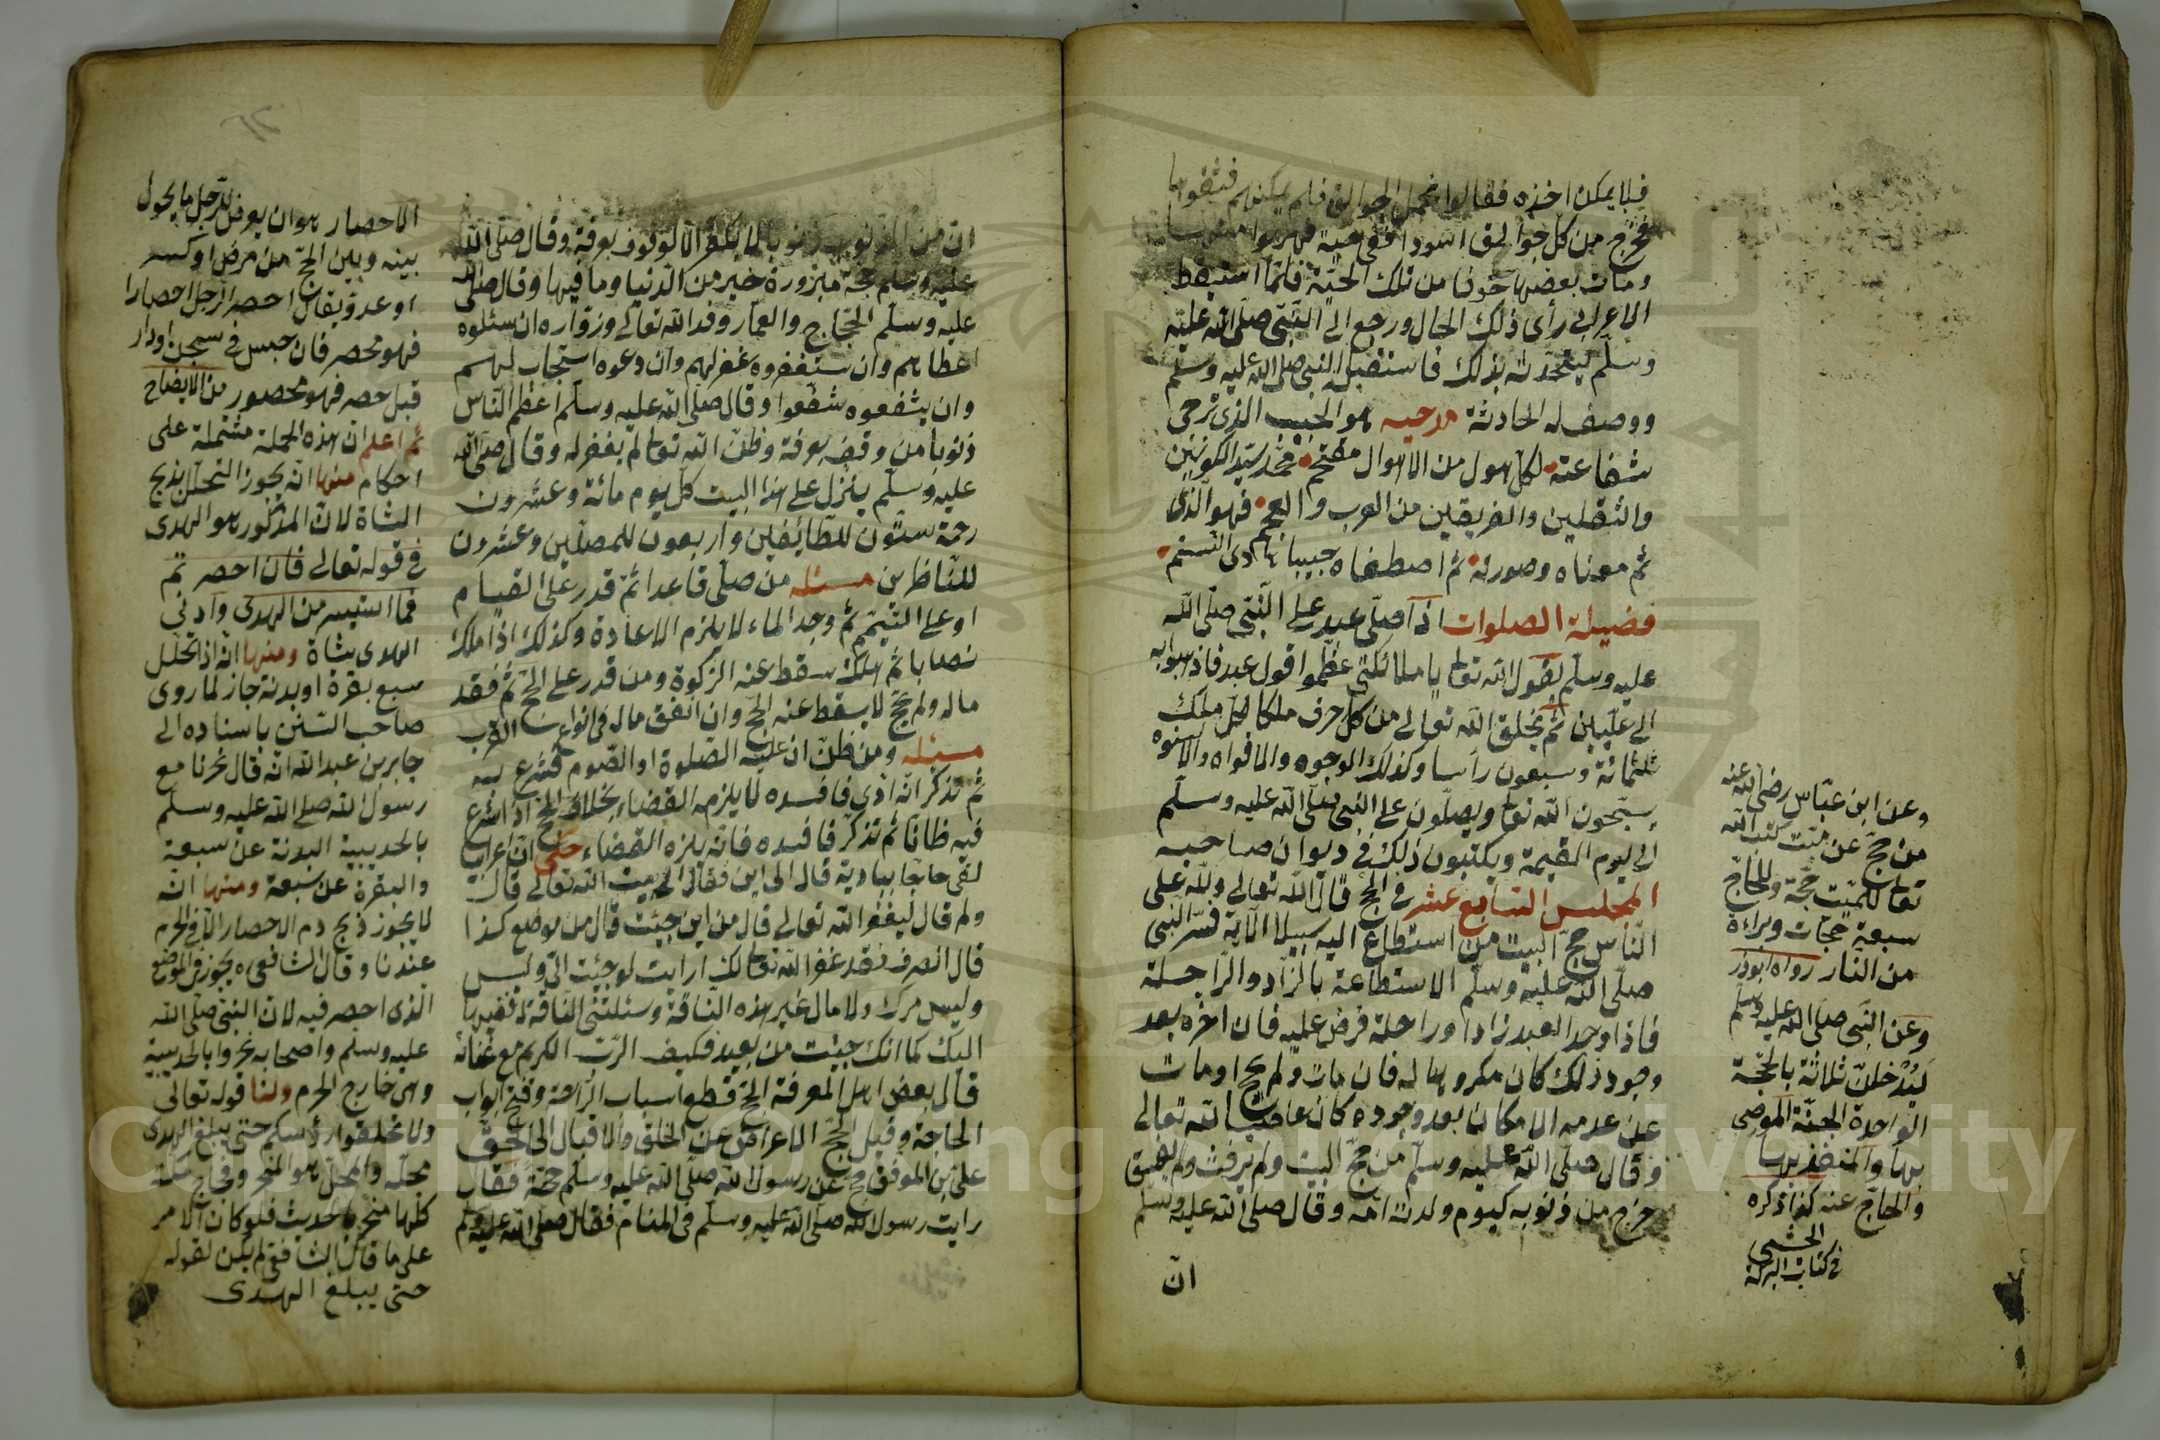 فلا يمكن اخذه فقالوا نحمل الجوالق فلم يمكنهم فثقوبها
فخرج من كل جوالق اسود افعى حية فهربوا منها
ومات بعضها خوفا من تلك الحية فلما استيقظ
الاعرابى رأى ذلك الحال ورجع الى النبى صلى الله عليه
وسلم ليتحدث بذلك فاستقبل النبى صلى الله عليه وسلم
ووصف له الحادثة مدحيه هو الحبيب الذى ترجى
شفاعته لكل هول من الاهوال مقتحم محمد سيد الكونين
والثقلين والفريقين من العرب والعجم فهو الذى
تم معناه وصورته ثم اصطفاه حبيبا بادى النسم
فضيلة الصلوات اذا صلى عبد على النبى صلى الله
عليه وسلم يقول الله تعالى يا ملائكتى عظموا قول عبد فاذهبوا به
الى عليين ثم يخلق الله تعالى من كل حرف ملكا لكل ملك
ثلثمائة وسبعون رأسا وكذلك الوجوه والافواه والالسنه
يسبحون الله تعالى ويصلون على النبى صلى الله عليه وسلم
الى يوم القيمة ويكتبون ذلك فى ديوان صاحبه
المجلس التاسع عشر فى الحج قال الله تعالى ولله على
الناس حج البيت من استطاع اليه سبيلا الآية فسر النبى
صلى الله عليه وسلم الاستطاعة بالزاد والراحلة
فاذا وجد العبد زادا وراحلة فرض عليه فان اخره بعد
وجود ذلك كان مكروها له فان مات ولم يحج او مات
عن عدمه الامكان بعد وجوده كان عاصيا لله تعالى
وقال صلى الله عليه وسلم من حج البيت ولم يرفث ولم يفسق
خرج من ذنوبه كيوم ولدته امه وقال صلى الله عليه وسلم
ان
وعن ابن عباس رضى الله عنه
من حج عن ميت كتب الله
تعالى للميت حجة وللحاج
سبعة حجات وبراءة
من النار رواه ابوذر
وعن النبى صلى الله عليه وسلم
ليدخلن ثلاثة بالحجة
الواحدة الجنة الموصى
بها والمنفذ بها
والحاج عنه كذا ذكره
فى كتاب البركة
ان من الذنوب ذنوبا لا يكفر الا لوقوف بعرفة وقال صلى الله
عليه وسلم حجة مبرورة خير من الدنيا وما فيها وقال صلى الله
عليه وسلم الحجاج والعمار وفد الله تعالى وزواره ان سئلوه
اعطاهم وان ستغفروه غفر لهم وان دعوه استجاب لهم
وان يشفعوه شفعوا وقال صلى الله عليه وسلم اعظم الناس
ذنوبا من وقف بعرفة وظن الله تعالى لم يغفر له وقال صلى الله
عليه وسلم ينزل على هذا البيت كل يوم مائة وعشرون
رحمة ستون للطائفين واربعون للمصلين وعشرون
للناظرين مسئله من صلى قاعدا ثم قدر على القيام
او على التيمم ثم وجد الماء لا يلزم الاعادة وكذلك اذا ملك
نصابا ثم هلك سقط عنه الزكوة ومن قدر على الحج ثم فقد
ماله ولم يحج لا يسقط عنه الحج وان انفق ماله فى انواع القرب
مسئله ومن ظن ان عليه الصلوة او الصوم فشرع فيه
ثم تذكر انه ادى فافسده لا يلزمه القضاء بخلاف الحج اذا شرع
فيه ظانا ثم تذكر فافسده فانه يلزه القضاء حكى ان اعرابى
لقى حاجا ببادية قال الى اين فقال الى بيت الله تعالى قال
ولم قال ليغفر الله تعالى قال من اين جيئت قال من موضع كذا
قال انصرف فقد غفر الله تعالى لك ارايت لو جيئت الى وليس
وليس مركب ولا مال غير هذه الناقة وسئلتنى الناقة لدفعتها
اليك كما انك جيئت من بعيد فكيف الرب الكريم مع غنائه
قال بعض اهل المعرفة الحج قطع اسباب الراحة وفتح ابواب
الحاجة وقيل الحج الاعراض عن الخلق والاقبال الى الحق
على بن الموفق حج عن رسول الله صلى الله عليه وسلم حجة فقال
رايت رسول الله صلى الله عليه وسلم فى المنام فقال صلى الله عليه وسلم
الاحصار هو ان يعرض للرجل ما يحول
بينه وبين الحج من مرض او كسر
او عدو يقال احصر الرجل احصارا
فهو محصر فان حبس فى سجن او دار
قيل حصر فهو محصور من الايضاح
ثم اعلم ان هذه الجملة مشتملة على
احكام منها انه يجوز التحلل بذبح
الشاة لان المذكور هو الهدى
فى قوله تعالى فان احصرتم
فما استيسر من الهدى وادنى
الهدى شاة ومنها انه اذا تحلل
سبع بقرة او بدنة جاز لما روى
صاحب السنن باسناده الى
جابر بن عبدالله انه قال نحرنا مع
رسول الله صلى الله عليه وسلم
بالحديبية البدنة عن سبعة
والبقرة عن سبعة ومنها انه
لا يجوز ذبح دم الاحصار الا فى الحرم
عندنا وقال الشافعى يجوز فى الموضع
الذى احصر فيه لان النبى صلى الله
عليه وسلم واصحابه نحروا بالحديبية
وهى خارج الحرم ولنا قوله تعالى
ولا تحلقوا رؤسكم حتى يبلغ الهدى
محله والمحل هو المنحر وفجاج مكة
كلها منحر بالحديث فلو كان الامر
على ما قال الشافعى لم يكن لقوله
حتى يبلغ الهدى